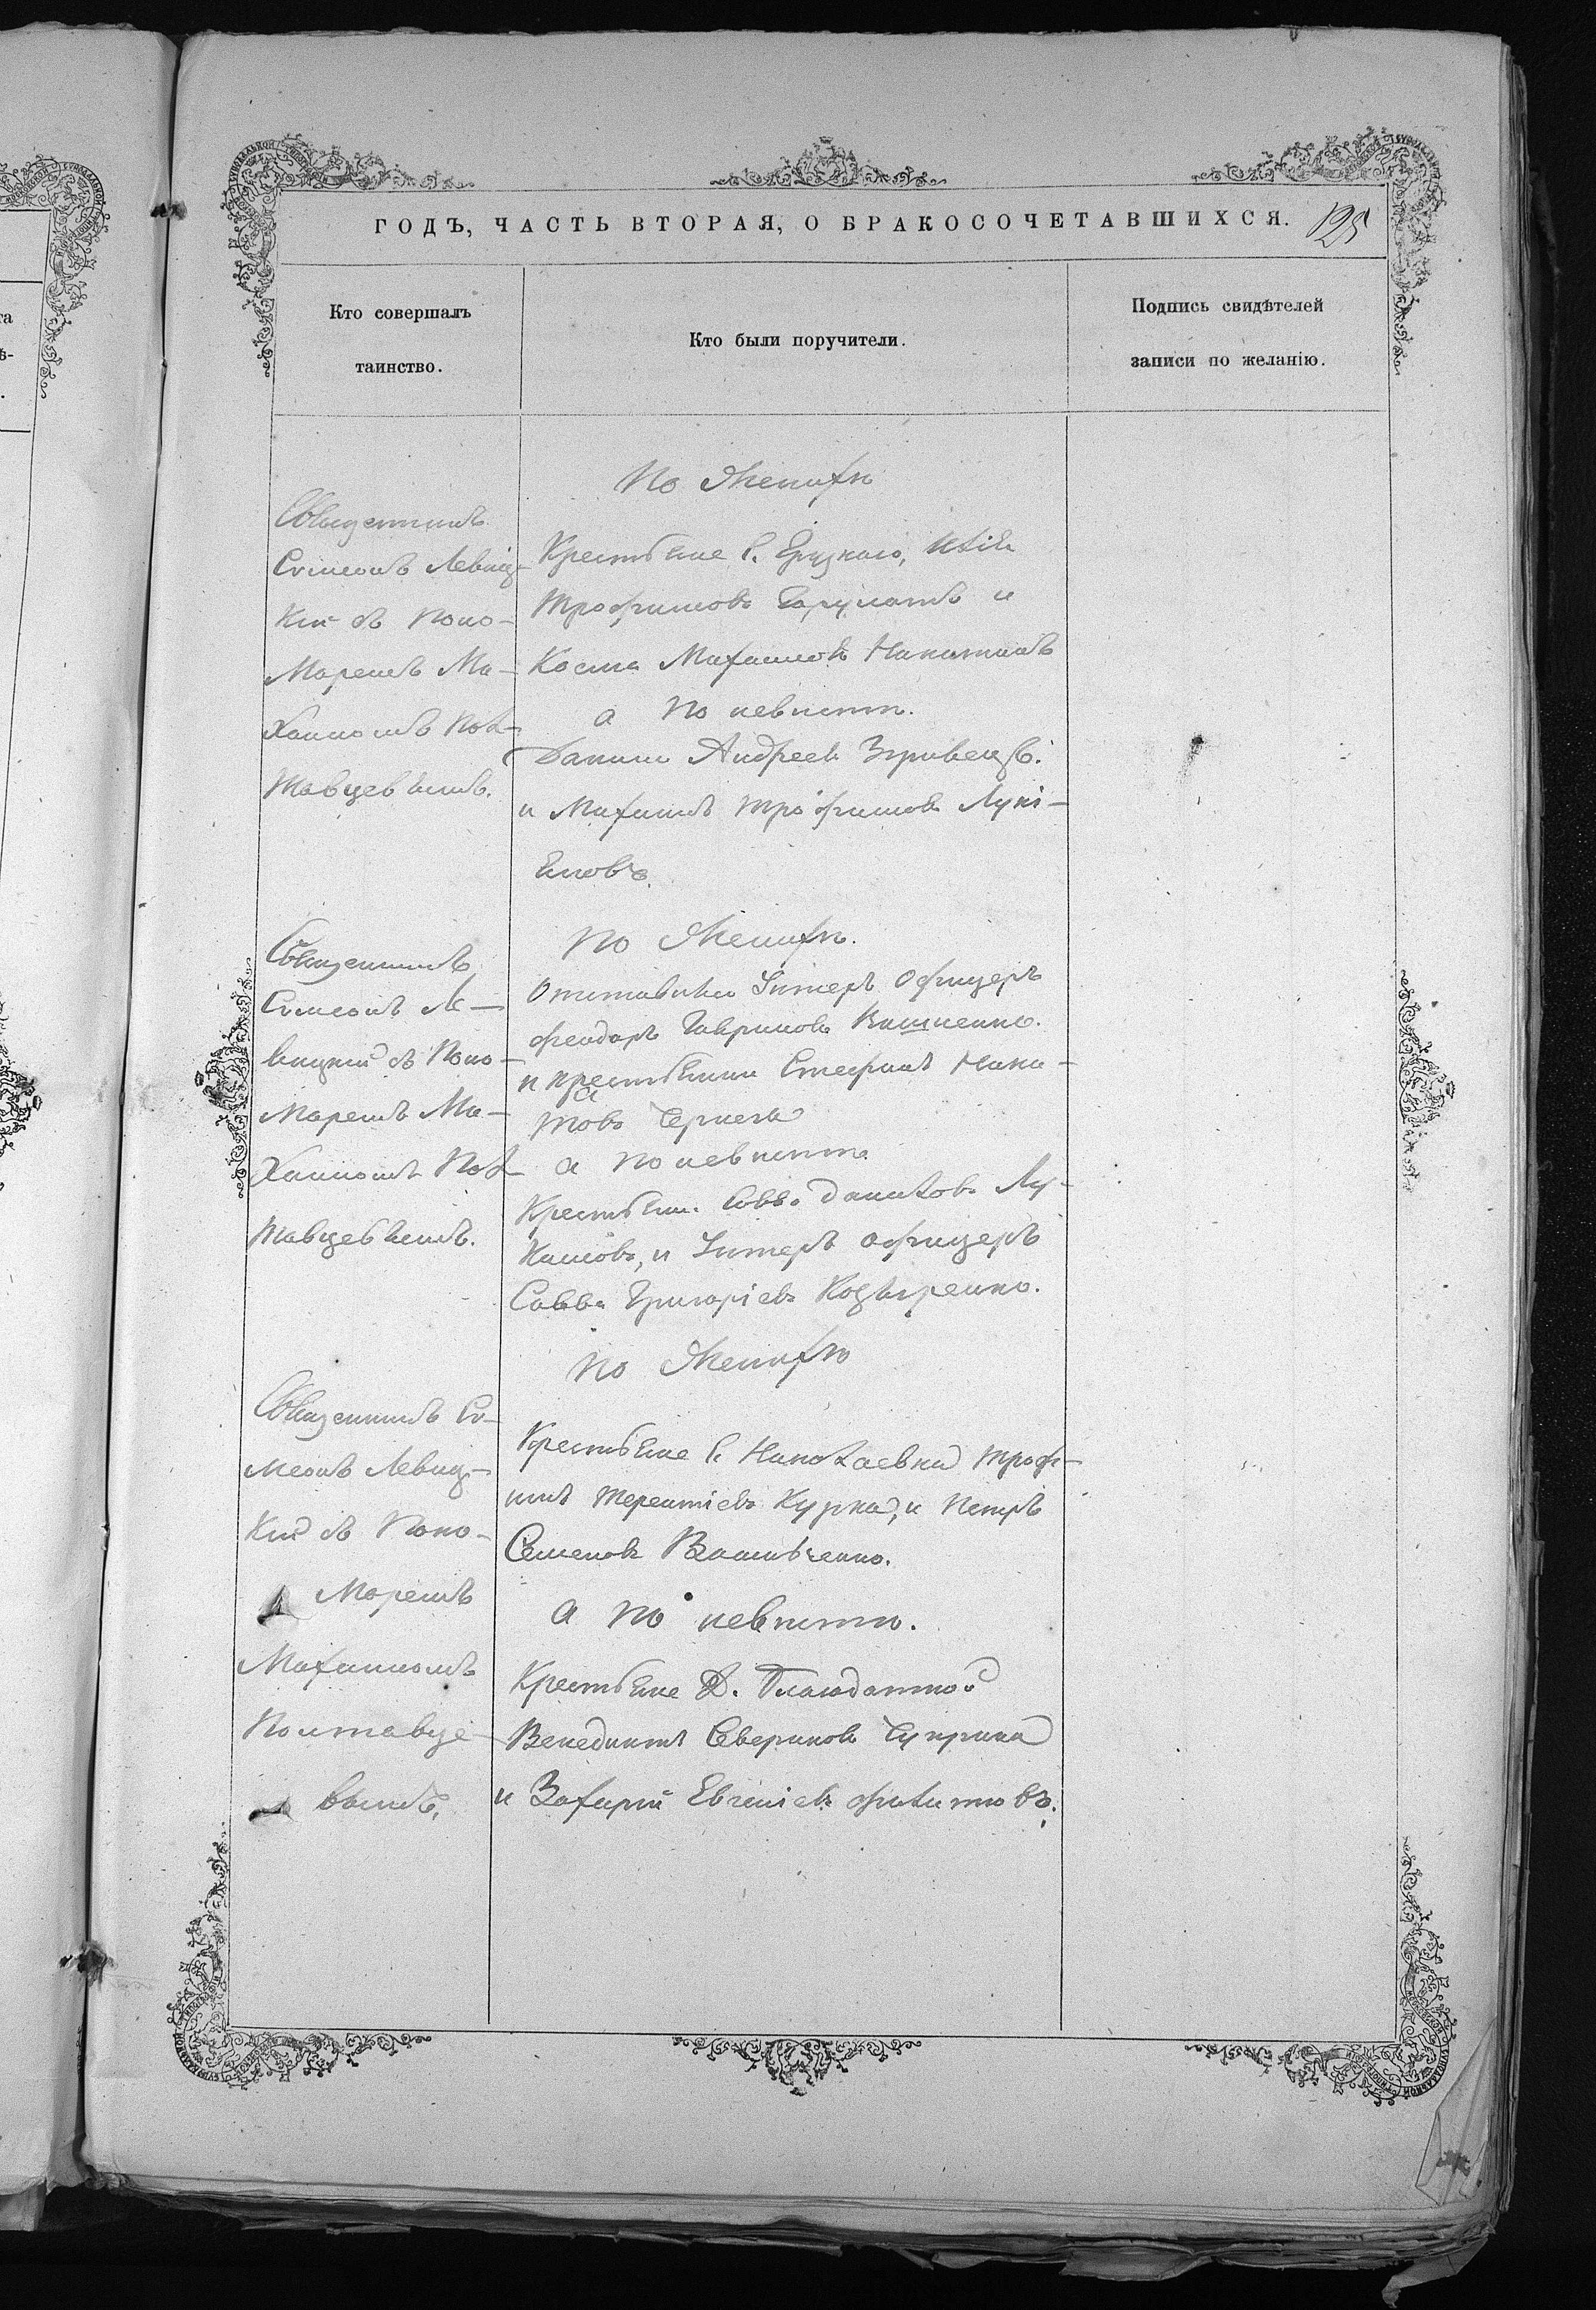 ГОДЪ, ЧАСТЬ ВТОРАЯ, О БРАКОСОЧЕТАВШИХСЯ. 125
Кто совершалъ
таинство.
Кто были поручители.
Подпись свидѣтелей
записи по желанію.
Священникъ
Симеонъ Левиц-
кій съ поно-
маремъ Ми-
хаиломъ Пол-
тавцевымъ.
По женихѣ
Крестьяне с. Грузкаго, Илія
Трофимовъ и
Косма Михаиловъ
а по невѣстѣ.
Даніилъ Андреевъ
и Михаилъ Трофимовъ Лукі-
яновъ.
Священникъ
Симеонъ Ле-
вицкій съ поно-
маремъ Ми-
хаиломъ Пол-
тавцевымъ.
По женихѣ.
Отставной Унтеръ Офицеръ
Феодоръ Гавриловъ Вишненко.
и крестьянинъ Стефанъ
а по невѣстѣ
Крестьян. Савва Даниловъ Лу-
кашовъ, и Унтеръ офицеръ
Савва Григоріевъ
Священникъ Си-
меонъ Левиц-
кій съ поно-
маремъ
Михаиломъ
Полтавце-
вымъ.
По женихѣ
Крестьяне с. Николаевки Троф-
имъ Терентіевъ Курка, и Петръ
Семеновъ Васильченко.
а по невѣстѣ.
Крестьяне Д. Благодатной
Венедиктъ Севериновъ Чуприна
и Захарій Евгеніевъ Филиповъ.